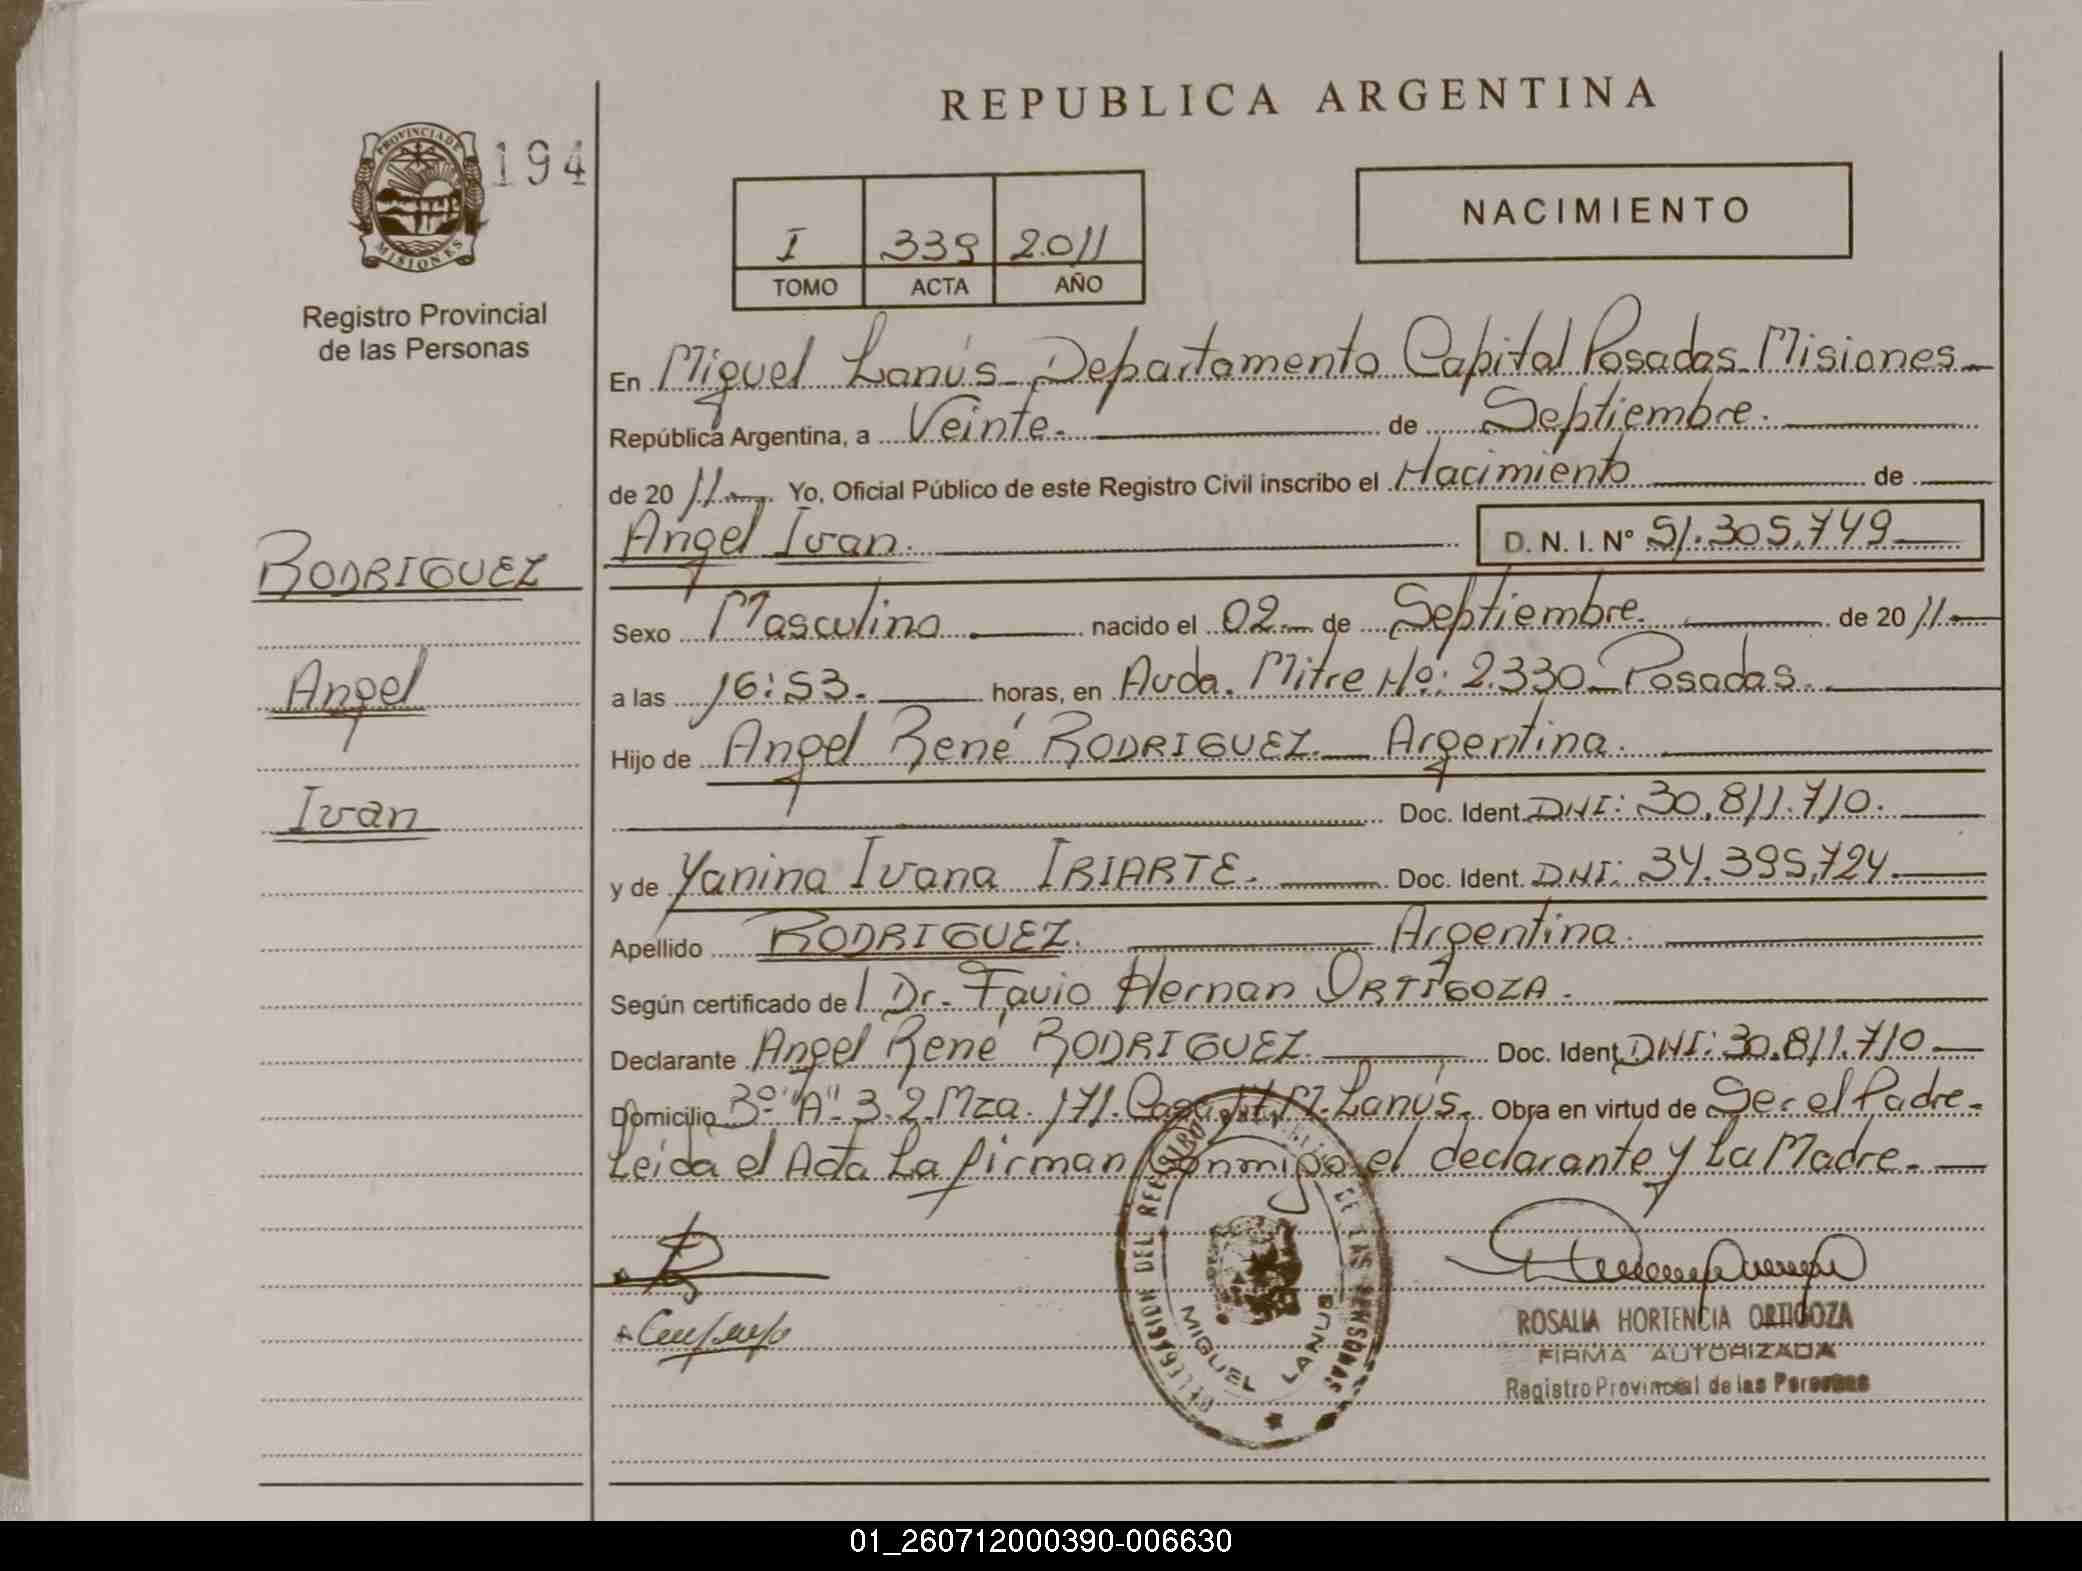 REPUBLICA ARGENTINA
PROVINCIA DE
MISIONES
194
Registro Provincial
de las Personas
I 339 2.011
TOMO ACTA AÑO
NACIMIENTO
En Miguel Lanús - Departamento Capital Posadas - Misiones -
República Argentina, a Veinte. de Septiembre.
de 20 11 Yo, Oficial Público de este Registro Civil inscribo el Nacimiento de
Angel Ivan. D. N. I. Nº 51.305.749
RODRIGUEZ
Angel
Ivan
Sexo Masculino nacido el 02 de Septiembre. de 20 11
a las 16:53. horas, en Avda. Mitre Nº: 2.330 - Posadas.
Hijo de Angel René RODRIGUEZ. - Argentina.
Doc. Ident. DNI: 30.811.710.
y de Yanina Ivana IRIARTE. Doc. Ident. DNI: 34.395.724.
Apellido RODRIGUEZ. Argentina.
Según certificado de l Dr. Favio Hernan ORTIGOZA.
Declarante Angel René RODRIGUEZ. Doc. Ident. DNI: 30.811.710
Domicilio Bº "A" 3.2. Mza. 171. Casa M. Lanús. Obra en virtud de Ser el Padre.
Leida el Acta La firman Conmigo el declarante y La Madre.
DELEGACION DEL REGISTRO DE LAS PERSONAS
MIGUEL LANUS
ROSALIA HORTENCIA ORTIGOZA
FIRMA AUTORIZADA
Registro Provincial de las Personas
01_260712000390-006630